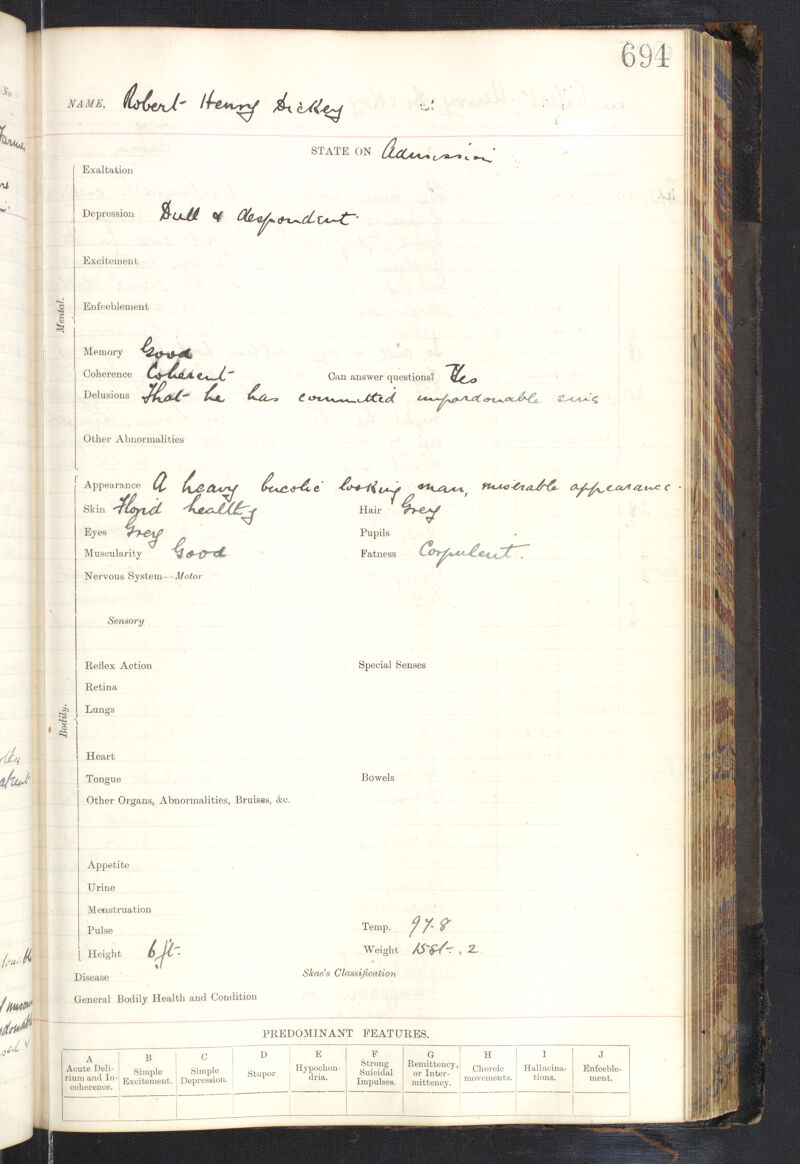 694
NAME, Robert Henry Dickey
STATE ON Admission
Mental.
Exaltation
Depression Dull & despondent
Excitement
Enfeeblement
Memory Good
Coherence Coherent Can answer questions? Yes
Delusions That he has committed unpardonable sins
Other Abnormalities
Bodily.
Appearance A heavy bucolic looking man, miserable appearance.
Skin Florid healthy Hair Grey
Eyes Grey Pupils
Muscularity Good Fatness Corpulent.
Nervous System—Motor
Sensory
Reflex Action Special Senses
Retina
Lungs
Heart
Tongue Bowels
Other Organs, Abnormalities, Bruises, &c.
Appetite
Urine
Menstruation
Pulse Temp. 97.8
Height 6 ft. Weight 15 st. , 2
Disease Skae's Classification
General Bodily Health and Condition
PREDOMINANT FEATURES.
A B C D E F G H I J
Acute Deli- Simple Simple Stupor Hypochon- Strong Remittency, Choreic Hallucina- Enfeeble-
rium and In- Excitement. Depression. dria. Suicidal or Inter- movements. tions. ment.
coherence. Impulses. mittency.